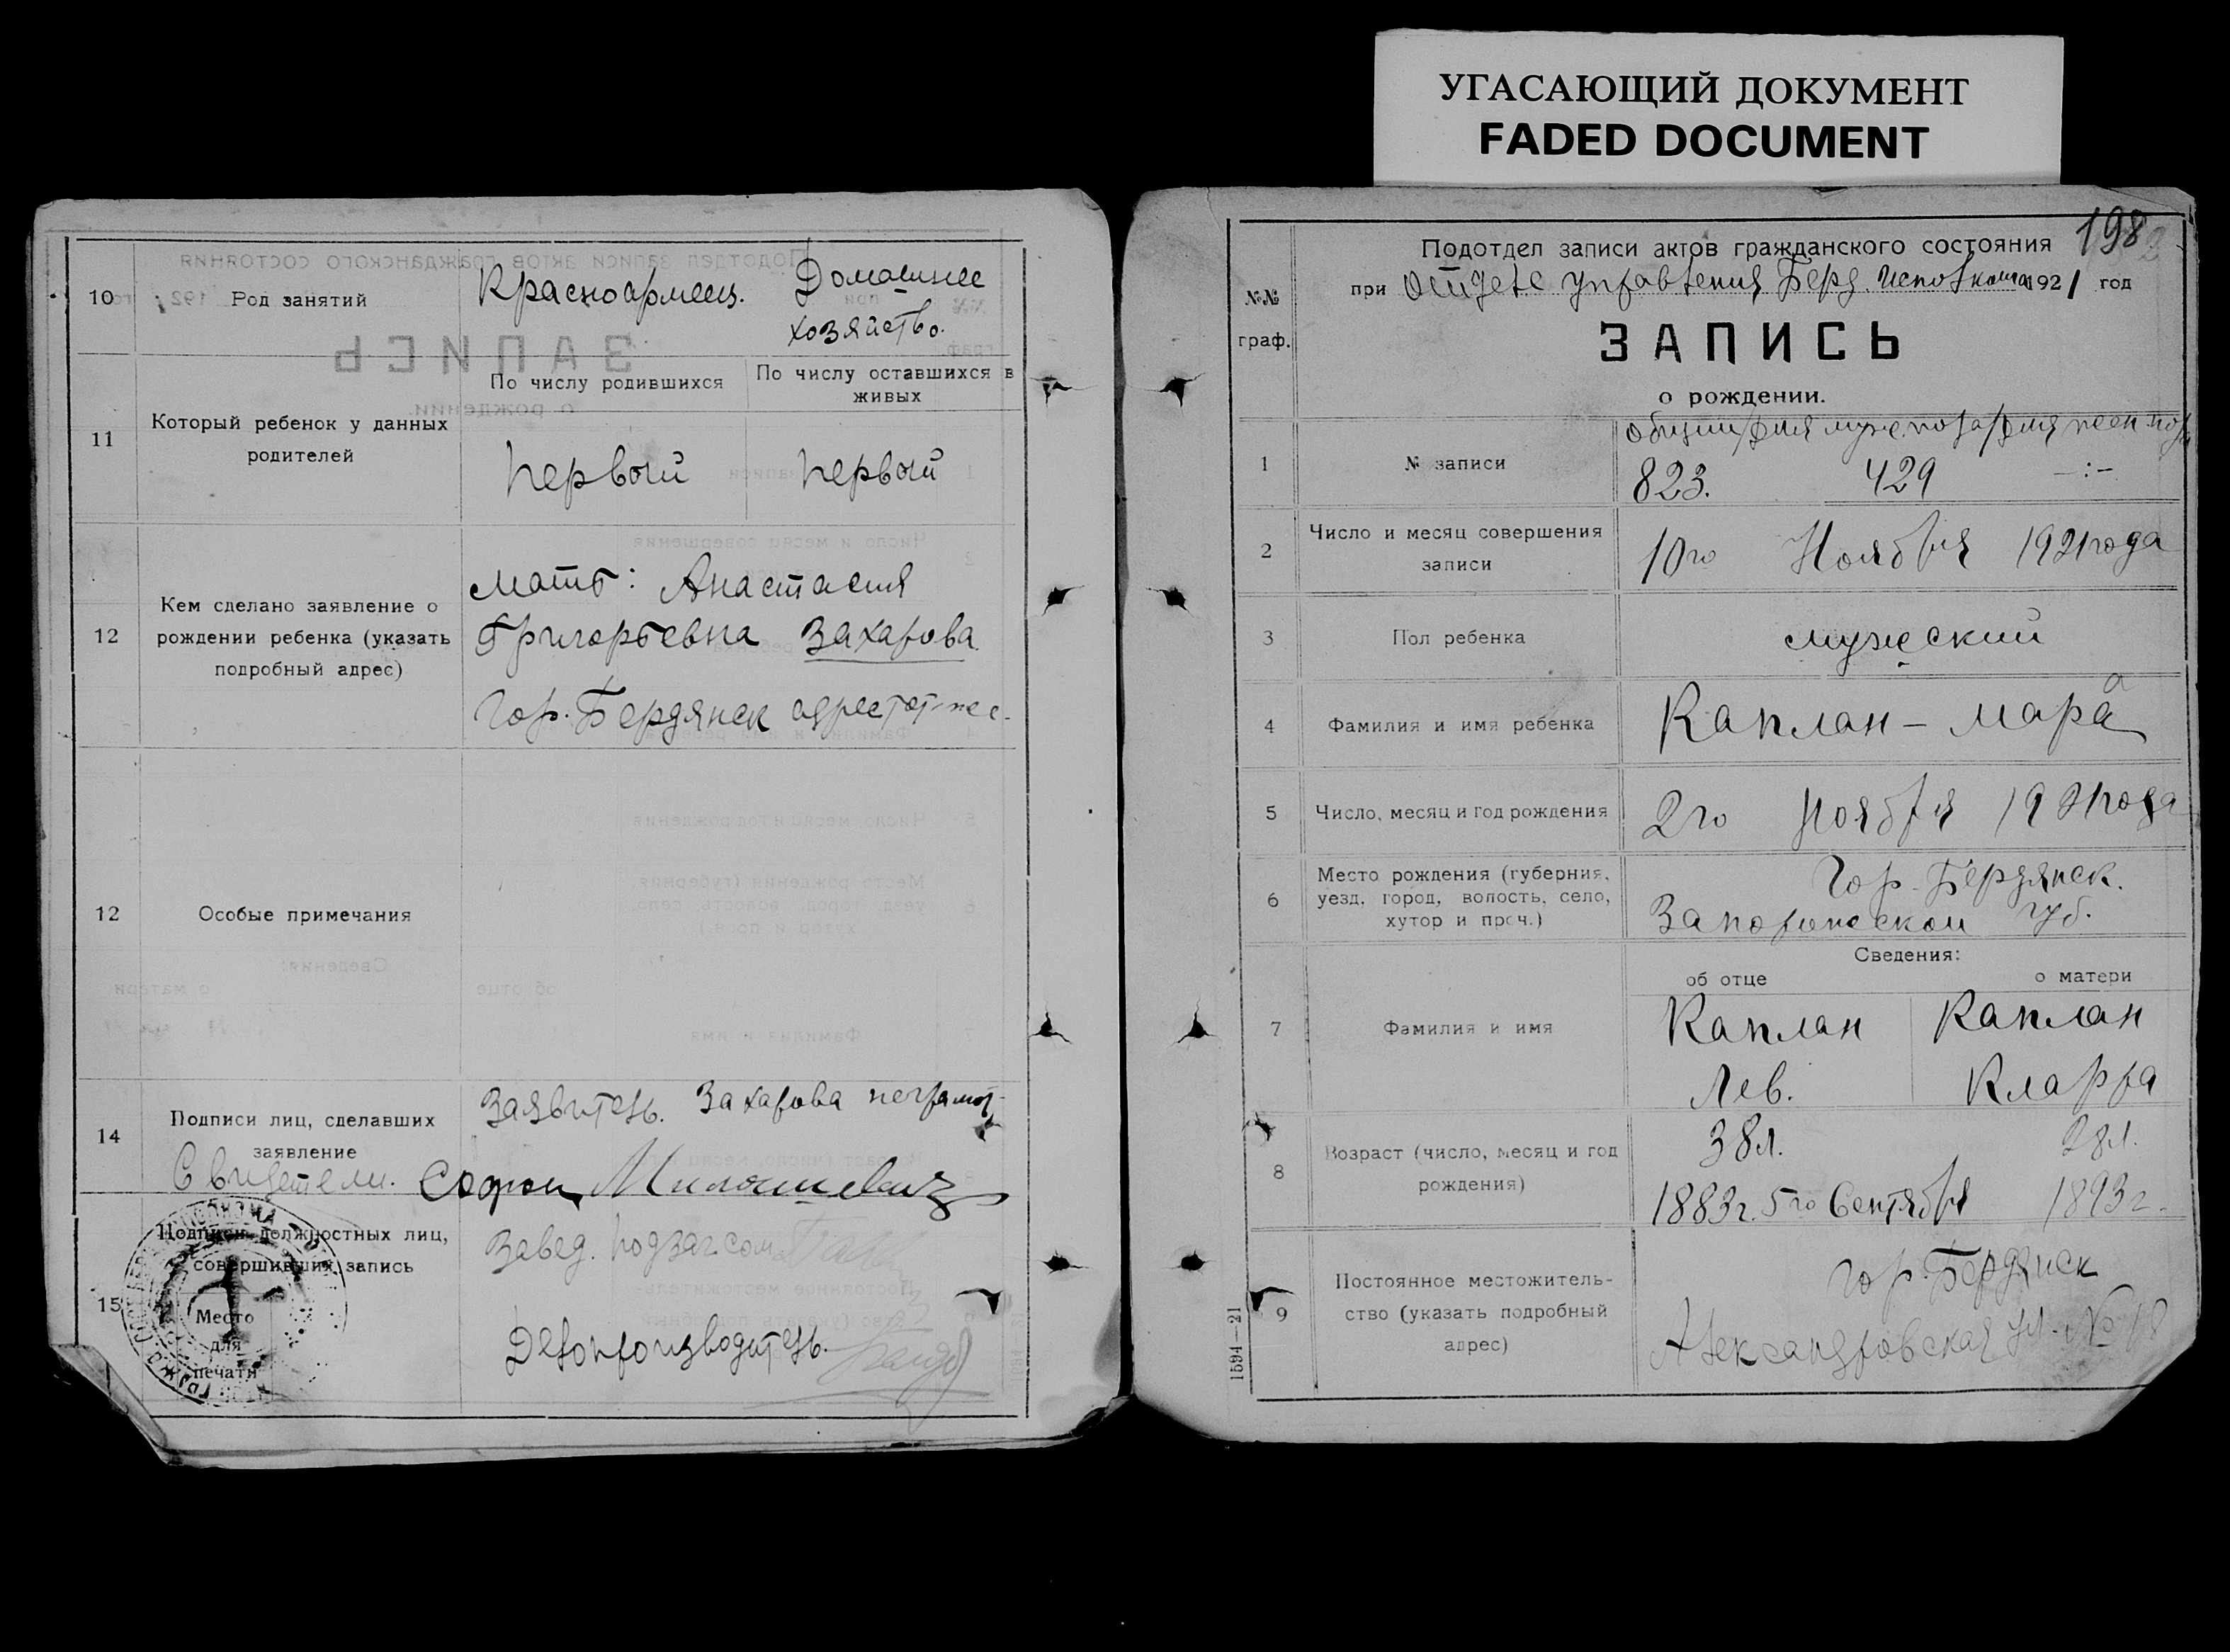 УГАСАЮЩИЙ ДОКУМЕНТ
FADED DOCUMENT
10
Род занятий
Красноармеец.
Домашнее
хозяйство.
11
Который ребенок у данных
родителей
По числу родившихся
По числу оставшихся в
живых
первый
первый
12
Кем сделано заявление о
рождении ребенка (указать
подробный адрес)
мать: Анастасия
Григорьевна Захарова
Гор. Бердянск адрес тот-же.
12
Особые примечания
14
Подписи лиц, сделавших
заявление
Заявитель. Захарова неграмот.
Свидетели.
15
Подписи должностных лиц,
совершивших запись
Место
для
печати
Завед. подзагсом
Делопроизводитель.
198
№№
граф.
Подотдел записи актов гражданского состояния
при отделе управления Берд. исполкома 1921 год
ЗАПИСЬ
о рождении.
1
№ записи
общий для муж. пола для жен. пола
823. 429 -:-
2
Число и месяц совершения
записи
10го Ноября 1921 года
3
Пол ребенка
мужеский
4
Фамилия и имя ребенка
Каплан - Мара
5
Число, месяц и год рождения
2го Ноября 1921 года
6
Место рождения (губерния,
уезд, город, волость, село,
хутор и проч.)
Гор. Бердянск.
Запорожской губ.
Сведения:
об отце
о матери
7
Фамилия и имя
Каплан
Лев.
Каплан
Клара
8
Возраст (число, месяц и год
рождения)
38 л.
1883 г. 5го Сентября
28 л.
1893 г.
9
Постоянное местожитель-
ство (указать подробный
адрес)
гор. Бердянск
Александровская ул. № 18
1594—21